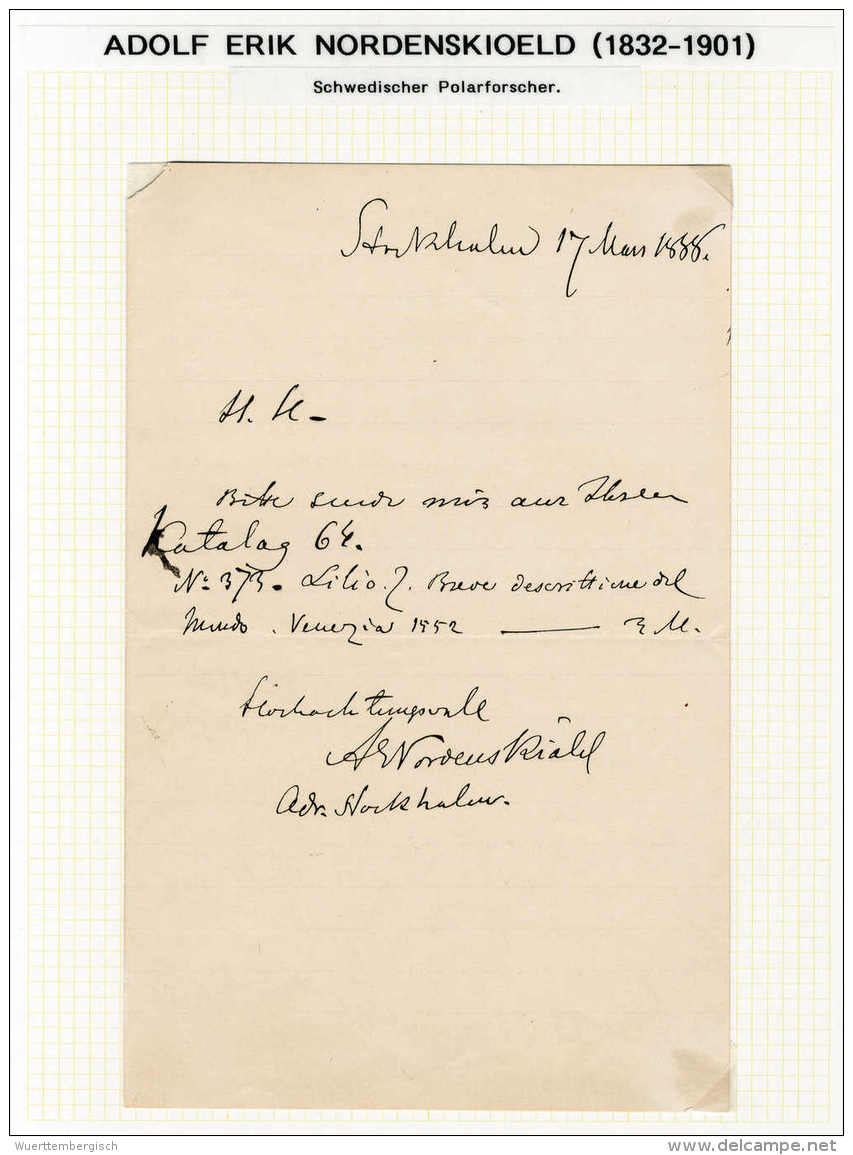 ADOLF ERIK NORDENSKIOELD (1832-1901)
Schwedischer Polarforscher.
Stockholm 17 Mars 1888.
H. H-
Bitte sende mir aus Ihrem
Katalog 64.
No: 373. Lilio. Z. Breve descrittione del
Mundo. Venezia 1552 — 3 M.
Hochachtungsvoll
AENordenskiöld
Adr. Stockholm.
Wuerttembergisch
www.delcampe.net